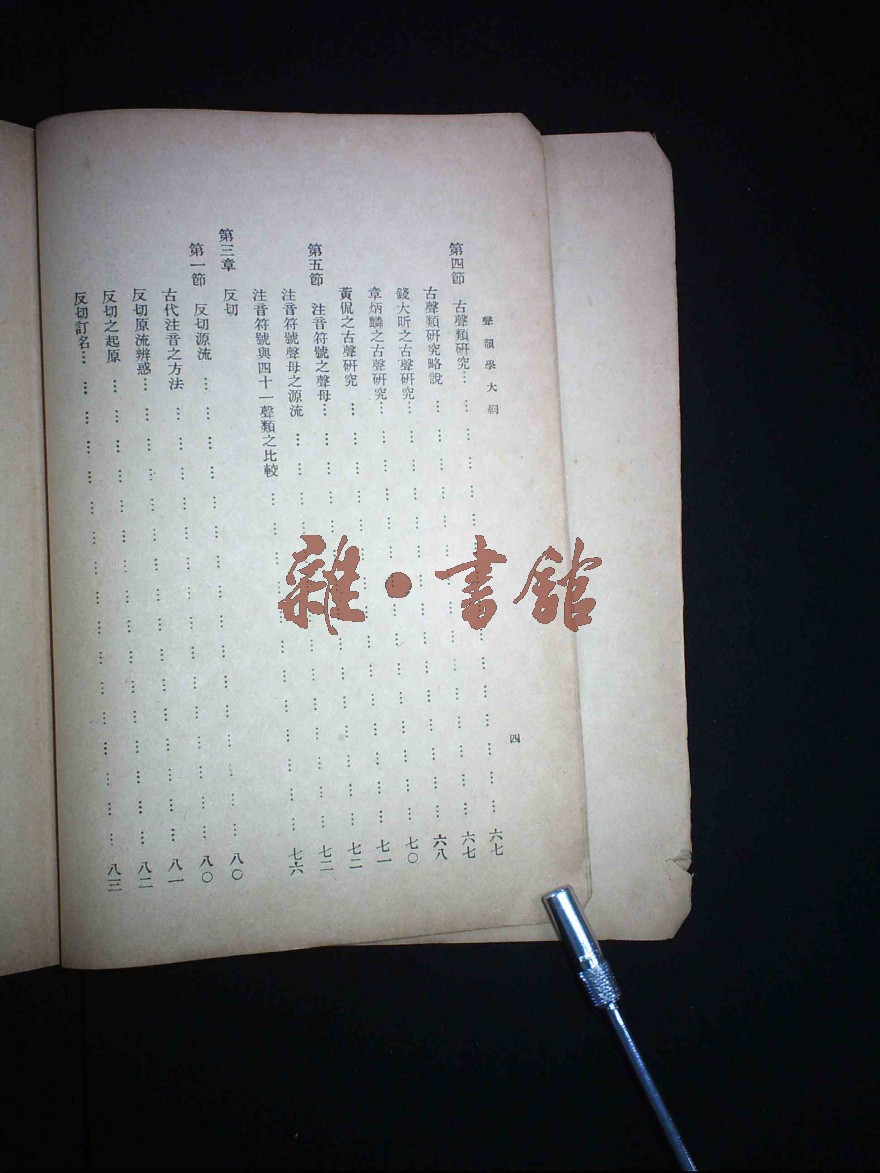 聲韻學大綱
四
第四節 古聲類研究………………六七
古聲類研究略說………………六七
錢大昕之古聲研究………………六八
章炳麟之古聲研究………………七〇
黃侃之古聲研究………………七一
第五節 注音符號之聲母………………七二
注音符號聲母之源流………………七二
注音符號與四十一聲類之比較………………七六
第三章 反切
第一節 反切源流………………八〇
古代注音之方法………………八〇
反切原流辨惑………………八一
反切之起原………………八二
反切訂名………………八三
雜·書館